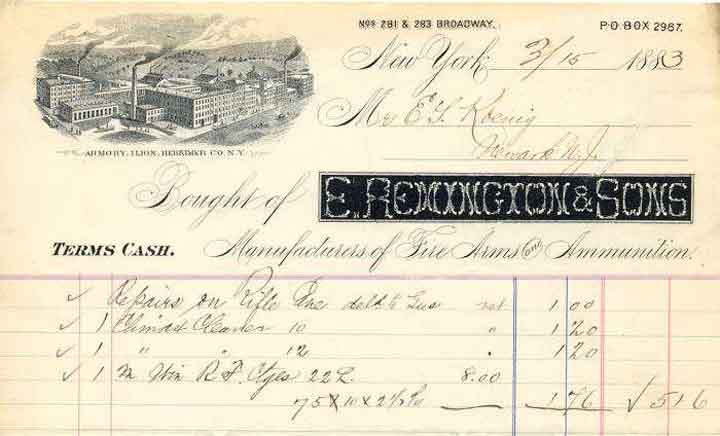 Nos 281 & 283 BROADWAY.
P·O·BOX 2967.
New York 3/15 1883
Mr E. S. Koenig
Newark N.J.
ARMORY, ILION, HERKIMER CO. N.Y.
Bought of E. REMINGTON & SONS
TERMS CASH. Manufacturers of Fire Arms and Ammunition.
✓ Repairs on Rifle net 1 00
✓ 1 Climax Cleaner 10 " 1 20
✓ 1 " " 12 " 1 20
✓ 1 M Win R. F. Ctges 22 L. 8.00
75 X 10 X 2 1/2 % 1 76 √ 5 16